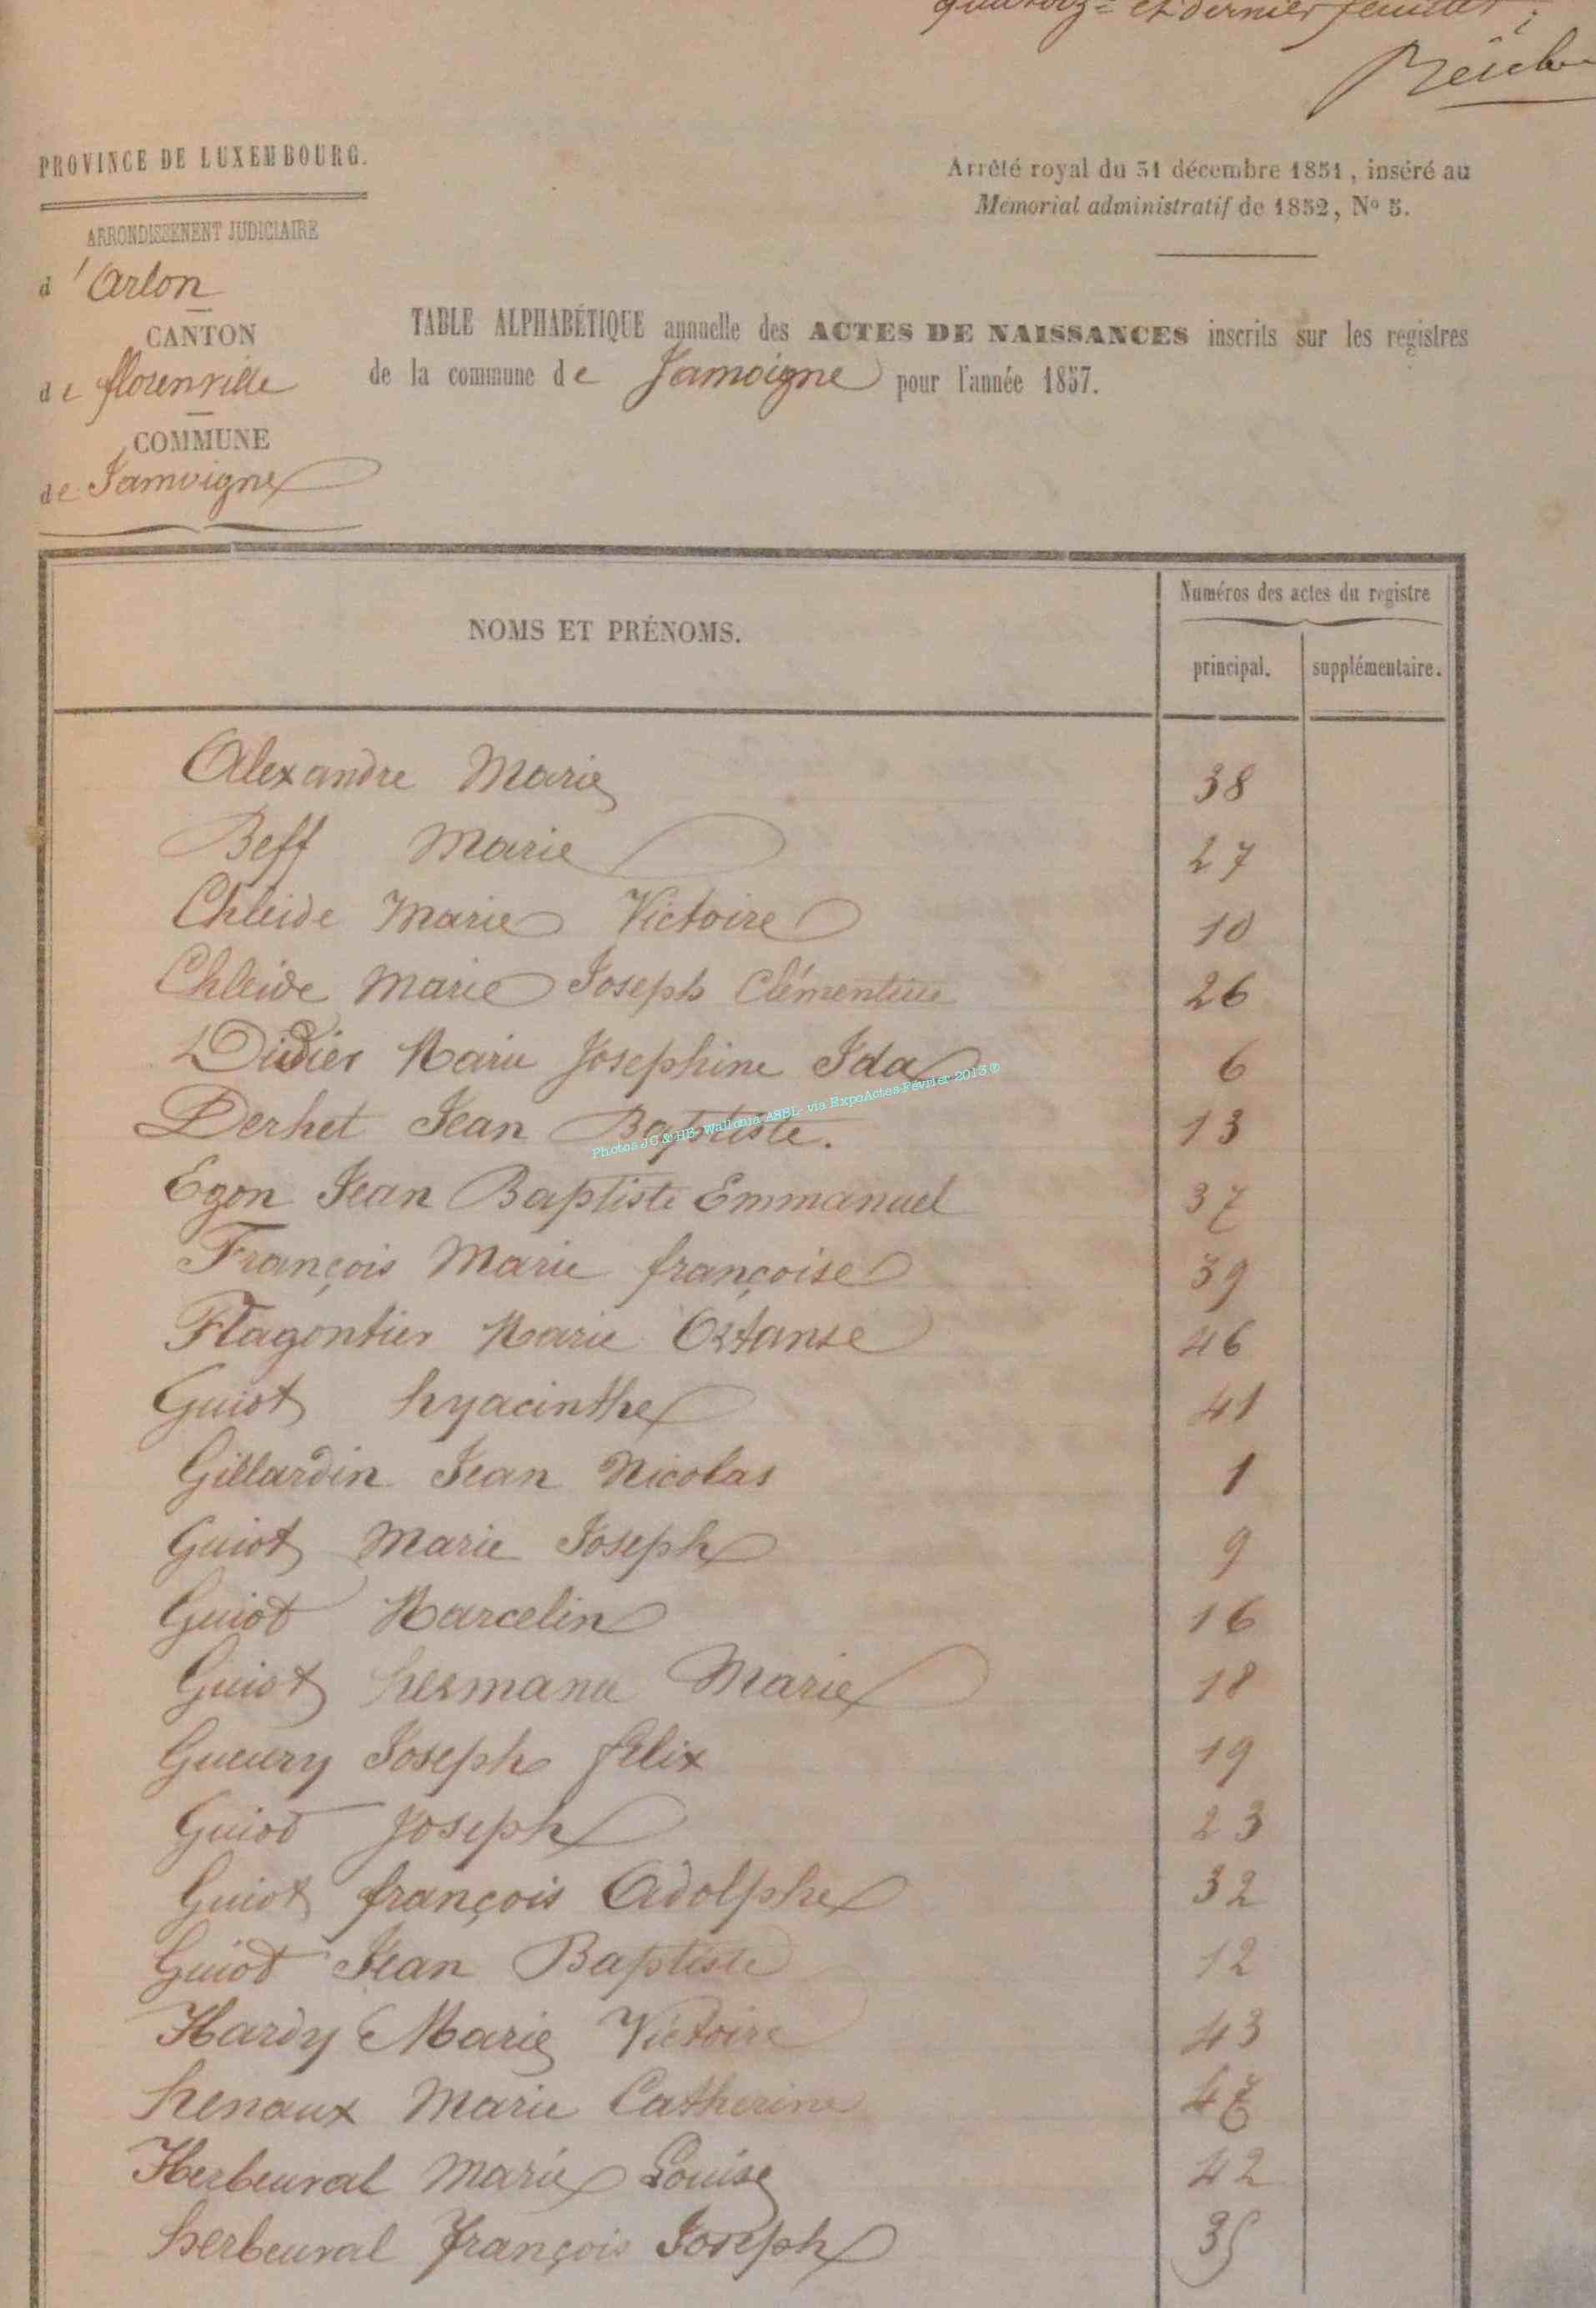 quatorz^e et dernier feuillet;
PROVINCE DE LUXEMBOURG.
Arrêté royal du 31 décembre 1851, inséré au
Mémorial administratif de 1852, N° 5.
ARRONDISSEMENT JUDICIAIRE
d'Arlon
CANTON
de florenville
COMMUNE
de Jamoigne
TABLE ALPHABÉTIQUE annuelle des ACTES DE NAISSANCES inscrits sur les registres
de la commune de Jamoigne pour l'année 1857.
NOMS ET PRÉNOMS.
Numéros des actes du registre
principal. supplémentaire.
Alexandre Marie 38
Beff Marie 27
Chleide Marie Victoire 10
Chleide Marie Joseph Clémentine 26
Didier Marie Josephine Ida 6
Photos JC & HB- Wallonia ASBL- via ExpoActes Février 2013®
Derhet Jean Baptiste. 13
Egon Jean Baptiste Emmanuel 37
François Marie françoise 39
Flagontier Marie Ortanse 46
Guiot hyacinthe 41
Gillardin Jean Nicolas 1
Guiot Marie Joseph 9
Guiot Marcelin 16
Guiot hermance Marie 18
Gueury Joseph felix 19
Guiot Joseph 23
Guiot françois Adolphe 32
Guiot Jean Baptiste 12
Hardy Marie Victoire 43
henaux Marie Catherine
Herbeuval Marie Louise 42
herbeuval François Joseph 35